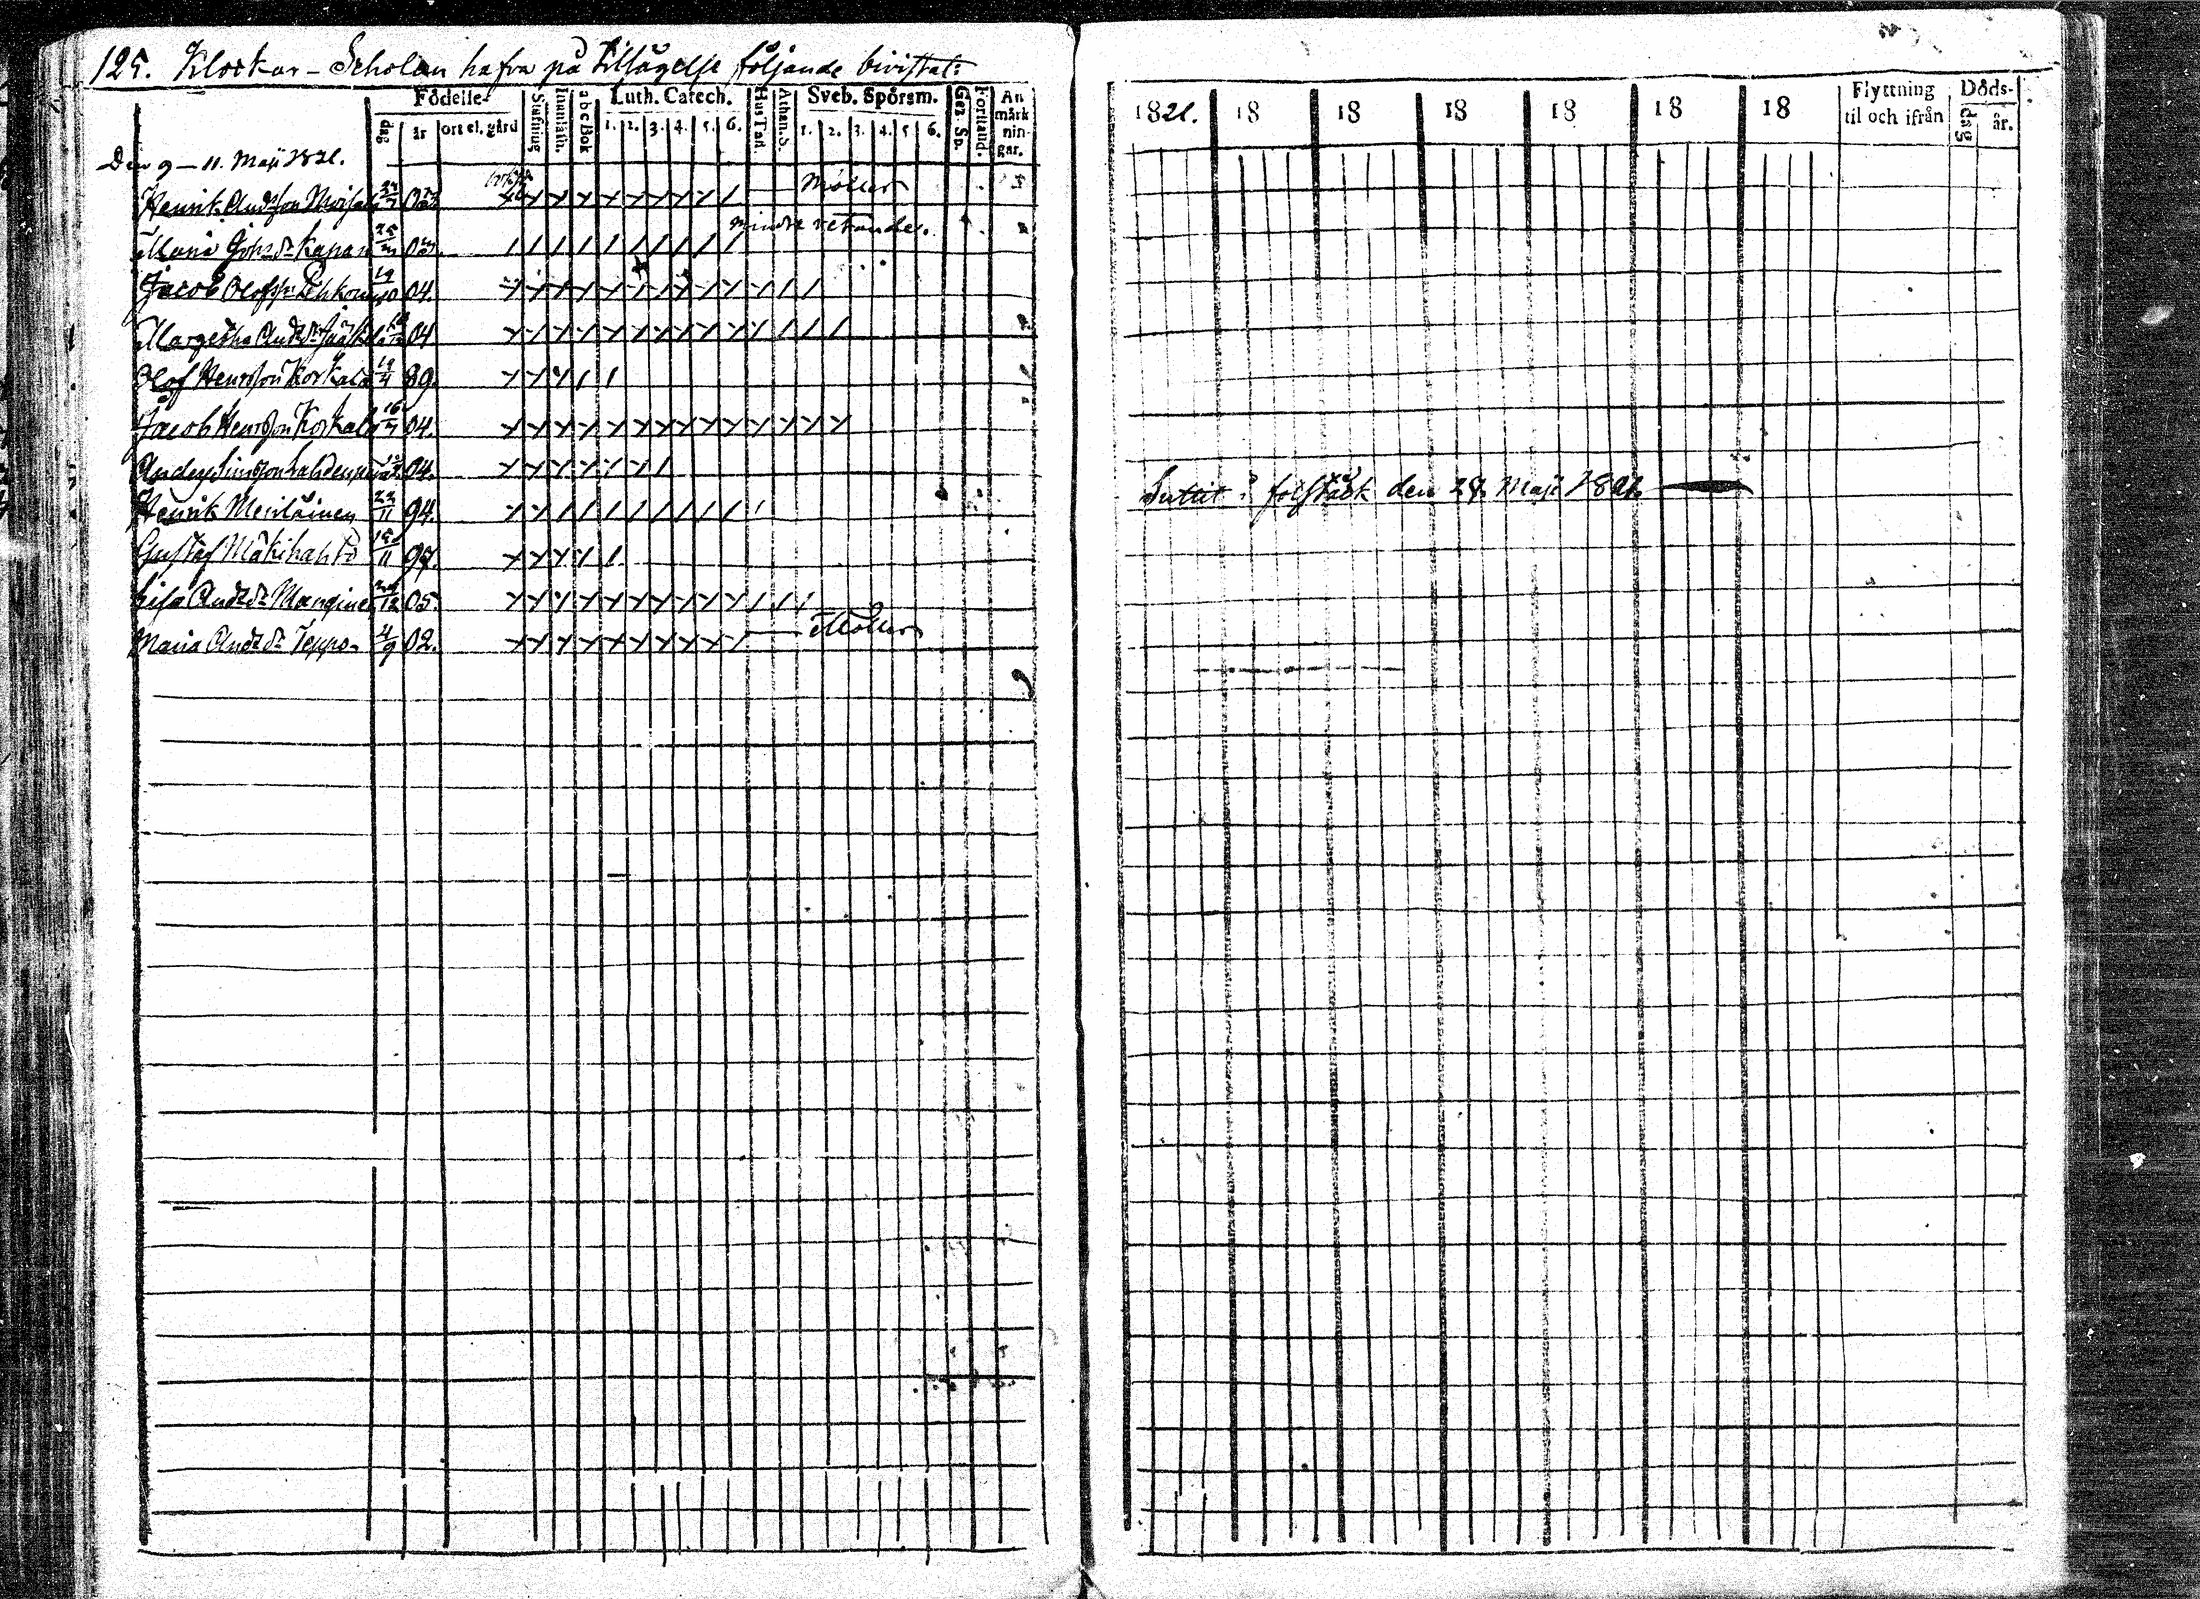 125. Klockar-Scholan hafva på tilsägelse följande bivistat:
Födelse-
dag
år
ort el. gård
Stafning
Innanläsn.
abcBok
Luth. Catech.
1. 2. 3. 4. 5. 6.
HusTafl.
Athan. S.
Sveb. Spörsm.
1. 2. 3. 4. 5 6.
Gez. Sp.
Förstånd.
An
märk
nin-
gar.
Den 9-11. Maji 1821.
Henrik Andsson 02. Möller
Maria Johsdr Kapan 25 02. mindre vetande.
Jacob Olofss 19/10 04.
Margetha Andsdr 04
Olof Henrsson Korkala 19/4 89.
Jacob Henrsson Korkala 16 04.
Anders Simsson 04.
Henrik Meriläinen 22/11 94.
Gustaf Mäkihahto 15/11 97.
Lisa Andsdr Manginen /12 05.
Maria Andsdr Teppo- 4/9 02. Möller
1821. 18 18 18 18 18 18
Flyttning
til och ifrån
Döds-
dag
år.
Suttit i fotstock den 28 Maji 1821.